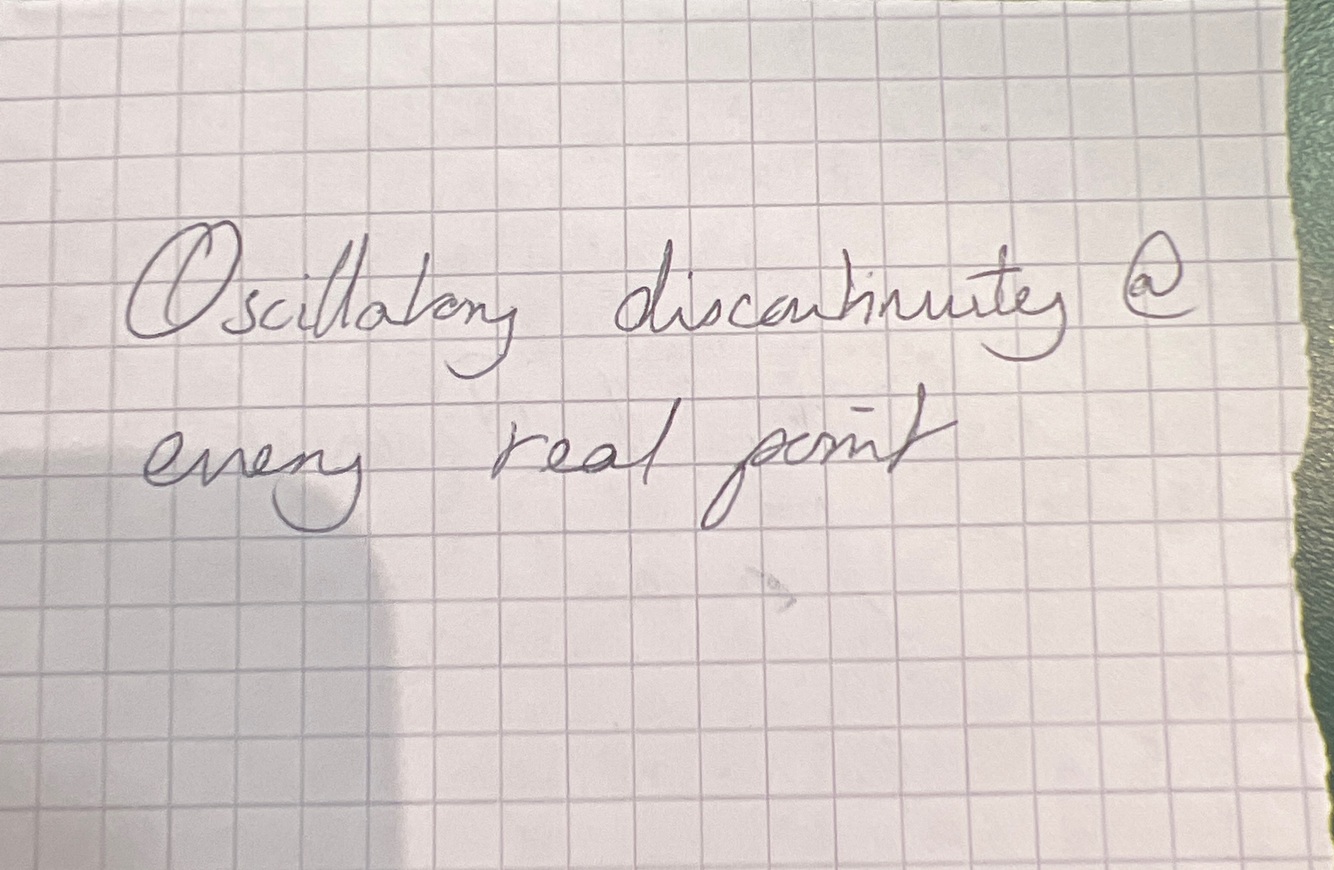 Oscillatory discontinuity @
every real point